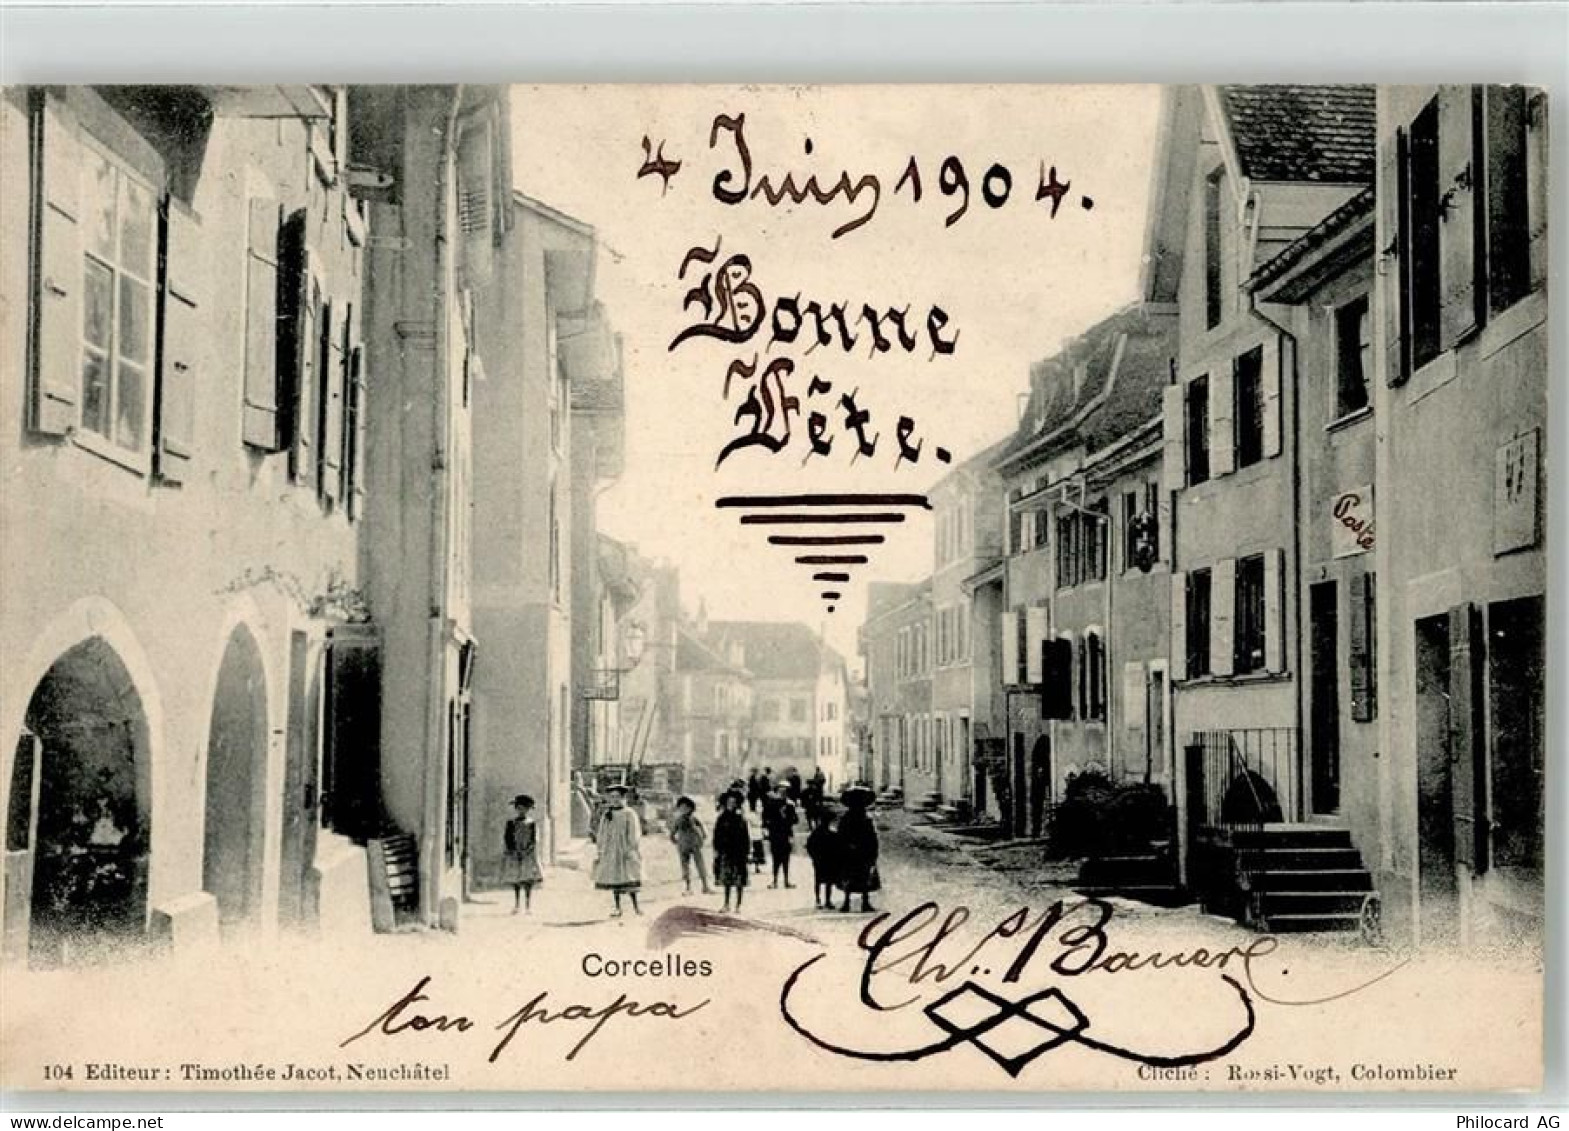 4 Juin 1904.
Bonne
Fête.
Poste
Corcelles
ton papa
Ch.s Bauer.
104 Editeur: Timothée Jacot, Neuchâtel
Cliché: Rossi-Vogt, Colombier
www.delcampe.net
Philocard AG